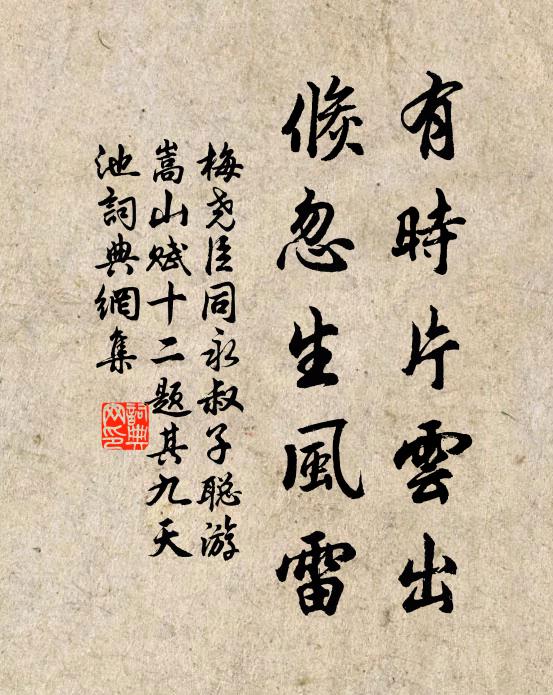 有時片雲出
倐忽生風雷
梅尧臣同永叔子聪游
嵩山赋十二题其九天
池詞典網集
詞典
网印